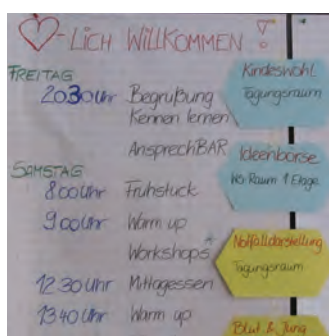 -LICH WILLKOMMEN !
FREITAG
20.30 Uhr Begrüßung
Kennen lernen
AnsprechBAR
SAMSTAG
8.00 Uhr Frühstück
9.00 Uhr Warm up
Workshops
12.30 Uhr Mittagessen
13.40 Uhr Warm up
Kindeswohl
Tagungsraum
Ideenbörse
WS Raum 1 Etage
Notfalldarstellung
Tagungsraum
Blut & Jung